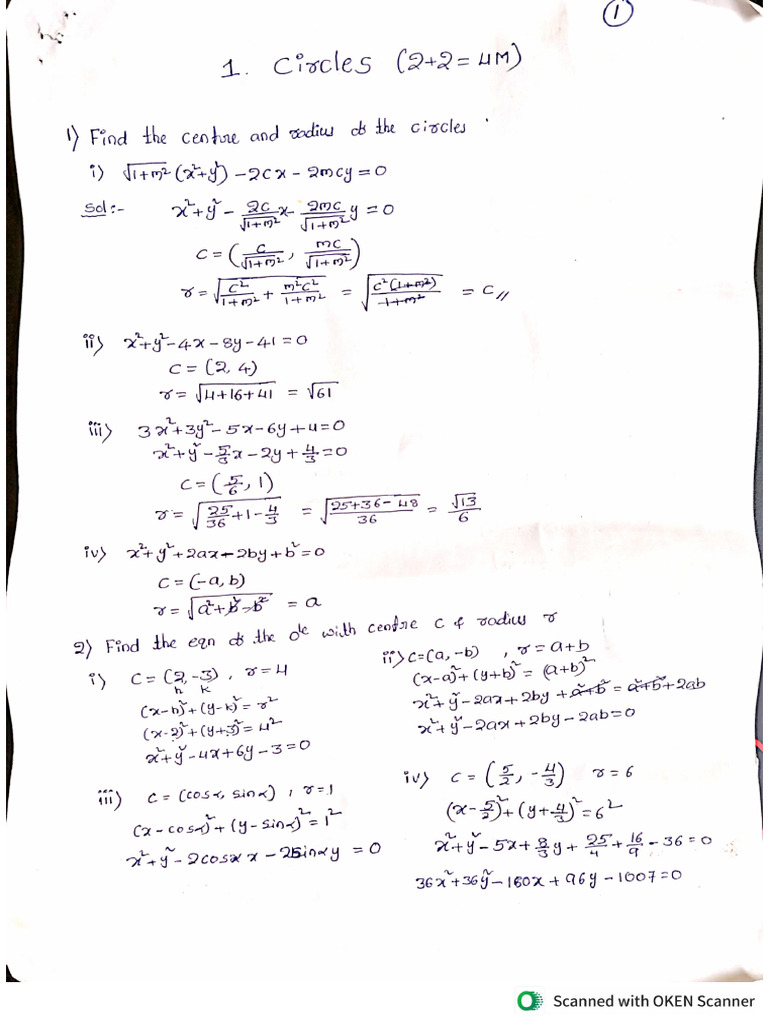 ①
1. Circles (2+2=4M)
1) Find the centure and radius of the circles
i) √1+m² (x²+y²) - 2cx - 2mcy = 0
Sol:- x²+y² - 2c/√1+m² x - 2mc/√1+m² y = 0
C = (c/√1+m², mc/√1+m²)
r = √c²/1+m² + m²c²/1+m² = √c²(1+m²)/1+m² = c//
ii) x²+y²-4x-8y-41=0
C = (2, 4)
r = √4+16+41 = √61
iii) 3x²+3y²-5x-6y+4=0
x²+y²-5/3x-2y+4/3=0
C = (5/6, 1)
r = √25/36+1-4/3 = √25+36-48/36 = √13/6
iv) x²+y²+2ax-2by+b²=0
C = (-a, b)
r = √a²+b²-b² = a
2) Find the eqn of the ole with centre C & radius r
i) C = (2, -3), r = 4
h k
(x-h)²+(y-k)²=r²
(x-2)²+(y+3)²=4²
x²+y²-4x+6y-3=0
ii) C=(a, -b), r = a+b
(x-a)²+(y+b)² = (a+b)²
x²+y²-2ax+2by+a²+b² = a²+b²+2ab
x²+y²-2ax+2by-2ab=0
iii) C = (cosα, sinα), r=1
(x-cosα)²+(y-sinα)²=1²
x²+y²-2cosα x - 2sinαy = 0
iv) C = (5/2, -4/3) r = 6
(x-5/2)²+(y+4/3)²=6²
x²+y²-5x+8/3y+25/4+16/9-36=0
36x²+36y²-180x+96y-1007=0
Scanned with OKEN Scanner